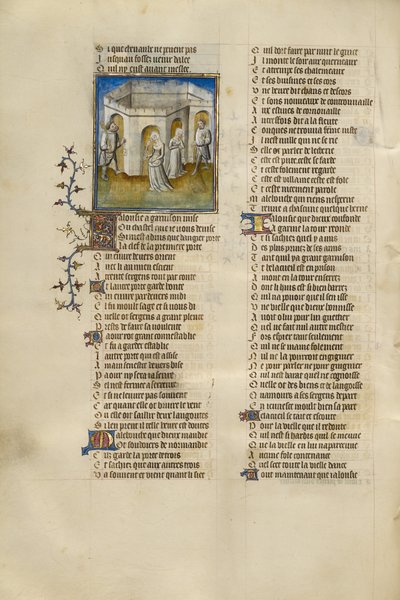 Si que chevaulx ne pueent pas
Jusquau fosse venir dalee
Quil ny eust avant meslee
Jalousie a garnison mise
Ou chastel que je vous devise
Si mest advis que dangier porte
La clef de la premiere porte
Qui euvre devers orient
Avec li au mien escient
A trente sergens tout par conte
Et lautre porte garde honte
Qui euvre par devers midi
El fu moult sage et si vous di
Quelle ot sergens a grant plente
Prests de faire sa voulente
Paour rot grant connestablie
Et fu a garder establie
Lautre porte qui est assise
A main senestre devers bise
Paour ny sera ja seure
Sel nest fermee a serreure
Et si ne leuvre pas souvent
Car quant elle ot bruire le vent
Ou elle ot saillir deux langoustes
Male bouche que dieux maudie
Ot soudoiers de normandie
Et sachiez que aux autres trois
Va souvent et vient quant il scet
Quil doit faire par nuit le guet
Il monte le soir aux querneaux
Et atrempe ses chalemeaux
Et ses buisines et ses cors
Une heure dit chans et descors
Et sons nouveaux de controuvaille
Aux estives de cornouaille
Autreffois dit a la fleute
Conques ne trouva feme juste
Il nest nulle qui ne se rie
Selle ot parler de lecherie
Ceste est pute ceste se farde
Et ceste folement regarde
Ceste est villaine ceste est fole
Et ceste nicement parole
Male bouche qui riens nesperne
Treuve a chascune quelque herne
Jalousie que dieux confonde
A garnie la tour ronde
Et si sachiez quel y a mis
Des plus privez de ses amis
Tant quil y a grant garnison
Et belacueil est en prison
Amont en la tour enserrez
Dont li huis est si bien barrez
Quil na pouoir que il sen isse
Une vieille que dieux honnisse
A voit o lui pour lui guettier
Quel ne fait nul autre mestier
Fors espier tant seulement
Quil ne se maine folement
Nul ne la pourroit enguigner
Ne de parler ne de guigner
Quil nest barat quel ne cognoisse
Quelle ot des biens et de langoisse
Quamours a ses sergens depart
En jeunesse moult bien sa part
Belacueil se taist et escoute
Pour la vieille que il redoute
Quil nest si hardis quil se meuve
Que la vieille en lui naparcoive
Aucune fole contenance
Quel scet toute la vielle dance
Tout maintenant que jalousie